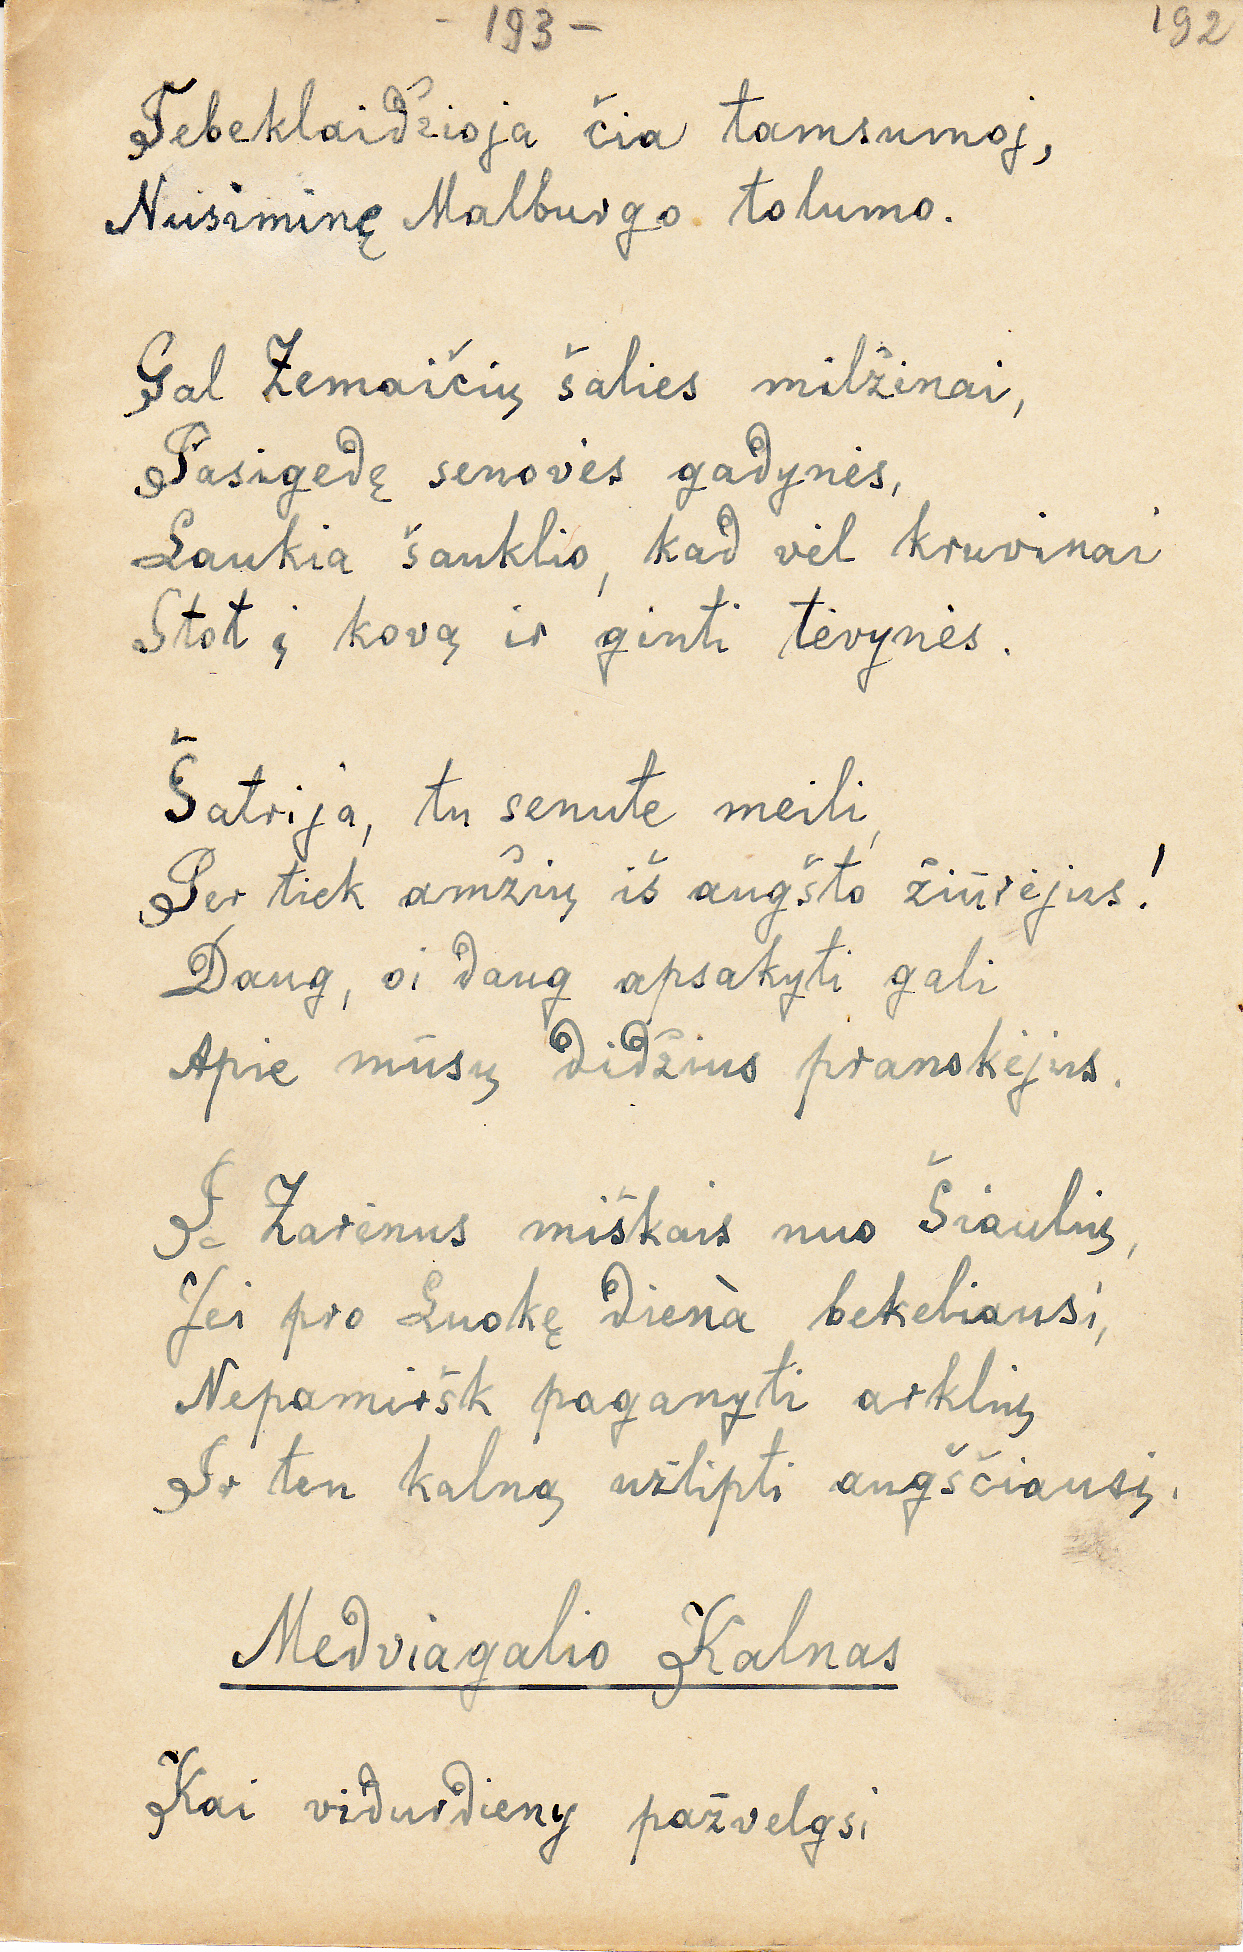 - 193 -
192
Tebeklaidžioja čia tamsumoj,
Nusiminę Malburgo tolumo.
Gal Žemaičių šalies milžinai,
Pasigedę senovės gadynės,
Laukia šauklio, kad vėl kruvinai
Stot į kovą ir ginti tėvynės.
Šatrija, tu senute meili,
Per tiek amžių iš augšto žiūrėjus!
Daug, oi daug apsakyti gali
Apie mūsų didžius pranokėjus.
Į Žarėnus miškais nuo Šiaulių,
Jei pro Luokę dieną bekeliausi,
Nepamiršk paganyti arklių
Ir ten kalną užlipti augščiausį.
Medviagalio Kalnas
Kai vidurdieny pažvelgsi